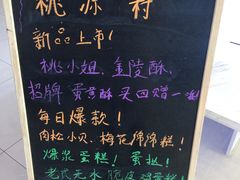 桃源村
新品上市!
桃小姐、金陵酥、
招牌 蛋黄酥 买四赠一
每日爆款!
肉松小贝、梅花绵绵糕!
爆浆蛋糕! 蛋挞!
老式无水 脆皮鸡蛋糕!